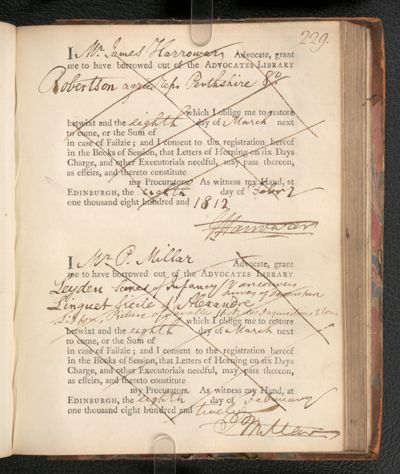 229.
I Mr James Harrower Advocate, grant
me to have borrowed out of the ADVOCATES LIBRARY
Robertson agricre Perthshire 8o
which I oblige me to restore
betwixt and the eighth day of March next
to come, or the Sum of
in case of Failzie; and I consent to the registration hereof
in the Books of Session, that Letters of Horning on six Days
Charge, and other Executorials needful, may pass thereon,
as effeirs, and thereto constitute
my Procurators. As witness my Hand, at
EDINBURGH, the eighth day of Febry
one thousand eight hundred and 1812
J Harrower
I Mr P. Millar Advocate, grant
me to have borrowed out of the ADVOCATES LIBRARY
Leyden Scenes of Infancy Vancouvers
Linguet Siècle d'Alexandre
which I oblige me to restore
betwixt and the eighth day of March next
to come, or the Sum of
in case of Failzie; and I consent to the registration hereof
in the Books of Session, that Letters of Horning on six Days
Charge, and other Executorials needful, may pass thereon,
as effeirs, and thereto constitute
my Procurators. As witness my Hand, at
EDINBURGH, the eighth day of February
one thousand eight hundred and twelve
P Millar